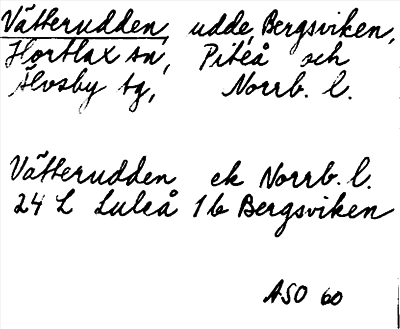 Vätterudden, udde, Bergsviken,
Hortlax sn, Piteå och
Älvsby tg, Norrb. l.
Vätterudden ek Norrb. l.
24 L Luleå 1 b Bergsviken
ASO 60